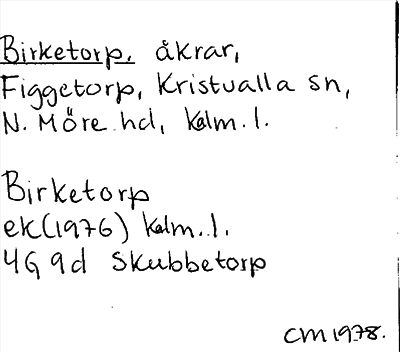 Birketorp, åkrar,
Figgetorp, Kristvalla sn,
N. Möre hd, Kalm. l.
Birketorp
ek(1976) Kalm. l.
4G 9d Skubbetorp
CM 1978.